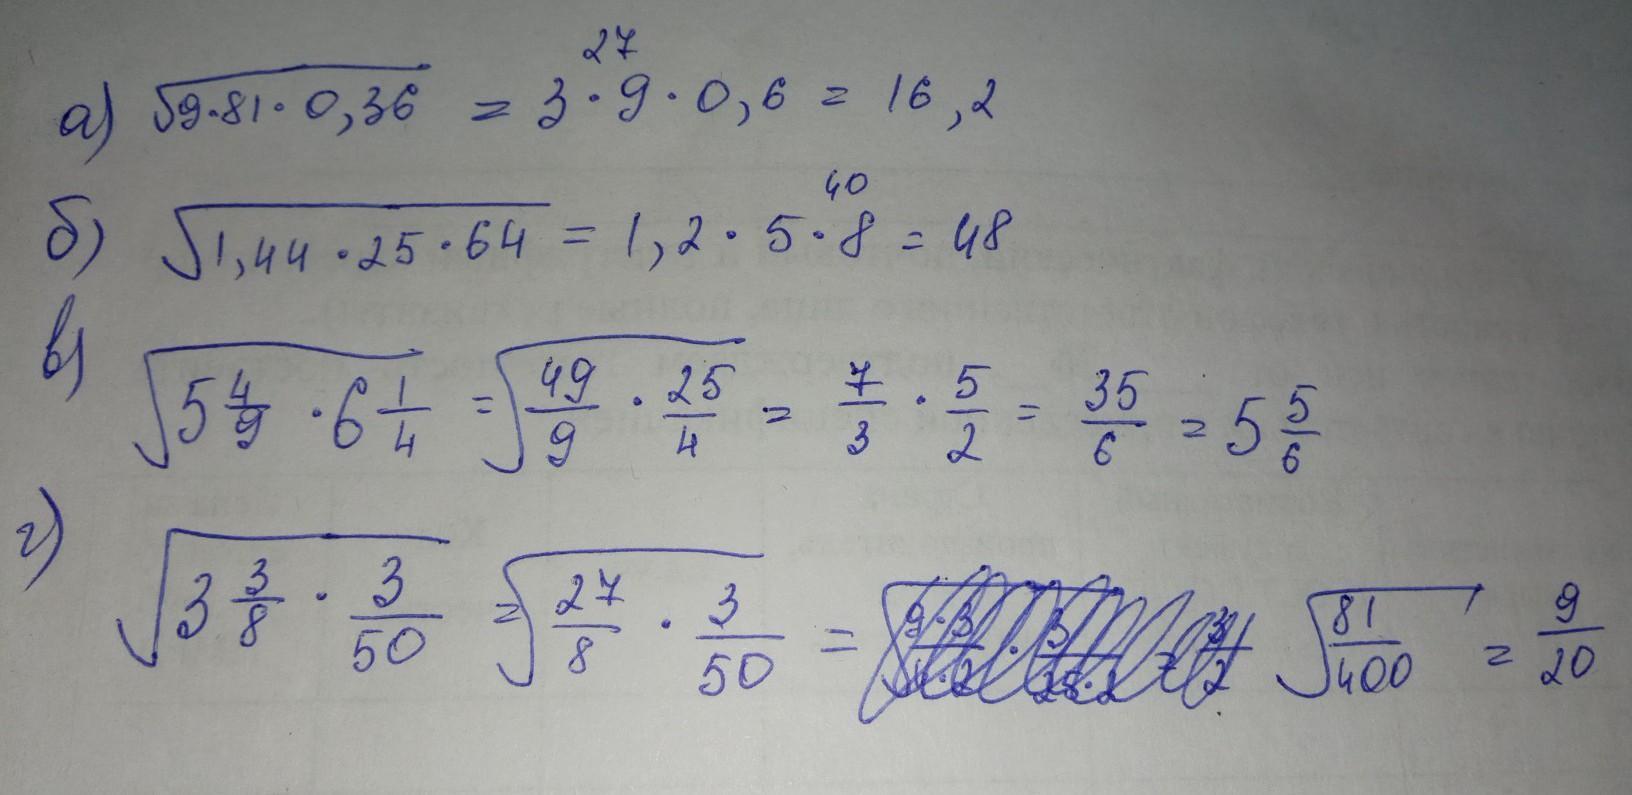 27
а) √9·81·0,36 = 3·9·0,6 = 16,2
40
б) √1,44·25·64 = 1,2·5·8 = 48
в) √5 4/9 · 6 1/4 = √49/9 · 25/4 = 7/3 · 5/2 = 35/6 = 5 5/6
г) √3 3/8 · 3/50 = √27/8 · 3/50 = √81/400 = 9/20